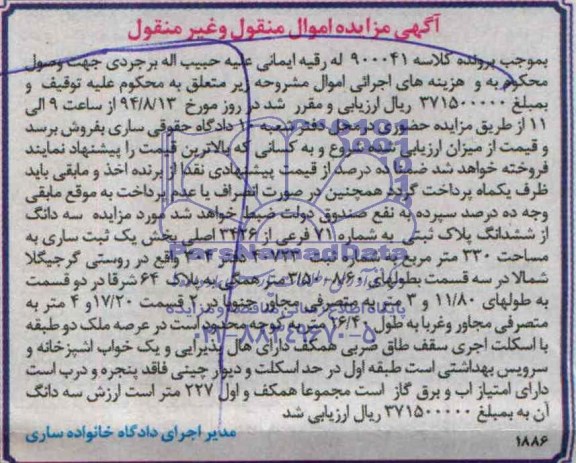 آگهی مزایده اموال منقول وغیر منقول
بموجب پرونده کلاسه ۹۰۰۰۴۱ له رقیه ایمانی علیه حبیب اله برجردی جهت وصول
محکوم به و هزینه های اجرائی اموال مشروحه زیر متعلق به محکوم علیه توقیف و
بمبلغ ۳۷۱۵۰۰۰۰۰ ریال ارزیابی و مقرر شد در روز مورخ ۹۴/۸/۱۳ از ساعت ۹ الی
۱۱ از طریق مزایده حضوری در محل دفتر شعبه ۱۰ دادگاه حقوقی ساری بفروش برسد
و قیمت از میزان ارزیابی شده شروع و به کسانی که بالاترین قیمت را پیشنهاد نمایند
فروخته خواهد شد ضمنا ده درصد از قیمت پیشنهادی نقدا از برنده اخذ و مابقی باید
ظرف یکماه پرداخت گردد همچنین در صورت انصراف یا عدم پرداخت به موقع مابقی
وجه ده درصد سپرده به نفع صندوق دولت ضبط خواهد شد مورد مزایده سه دانگ
از ششدانگ پلاک ثبتی به شماره ۷۱ فرعی از ۳۴۳۶ اصلی بخش یک ثبت ساری به
مساحت ۳۳۰ متر مربع به شماره ثبت ۴۰۷۲۳ دفتر ۲۰۴ واقع در روستی گرجیگلا
شمالا در سه قسمت بطولهای ۸/۶۰ و ۳/۵ متر همگی به پلاک ۶۴ شرقا در دو قسمت
به طولهای ۱۱/۸۰ و ۳ متر به متصرفی مجاور جنوبا در ۲ قسمت ۱۷/۲۰و ۴ متر به
متصرفی مجاور وغربا به طول ۲۶/۴۰ متر به کوچه محدود است در عرصه ملک دو طبقه
با اسکلت اجری سقف طاق ضربی همکف دارای هال پذیرایی و یک خواب اشپزخانه و
سرویس بهداشتی است طبقه اول در حد اسکلت و دیوار چینی فاقد پنجره و درب است
دارای امتیاز اب و برق گاز است مجموعا همکف و اول ۲۲۷ متر است ارزش سه دانگ
آن به بمبلغ ۳۷۱۵۰۰۰۰۰ ریال ارزیابی شد
مدیر اجرای دادگاه خانواده ساری
۱۸۸۶
ParsNamadData
پایگاه اطلاع رسانی مناقصه و مزایده
۰۲۱-۸۸۳۴۹۶۷۰-۵